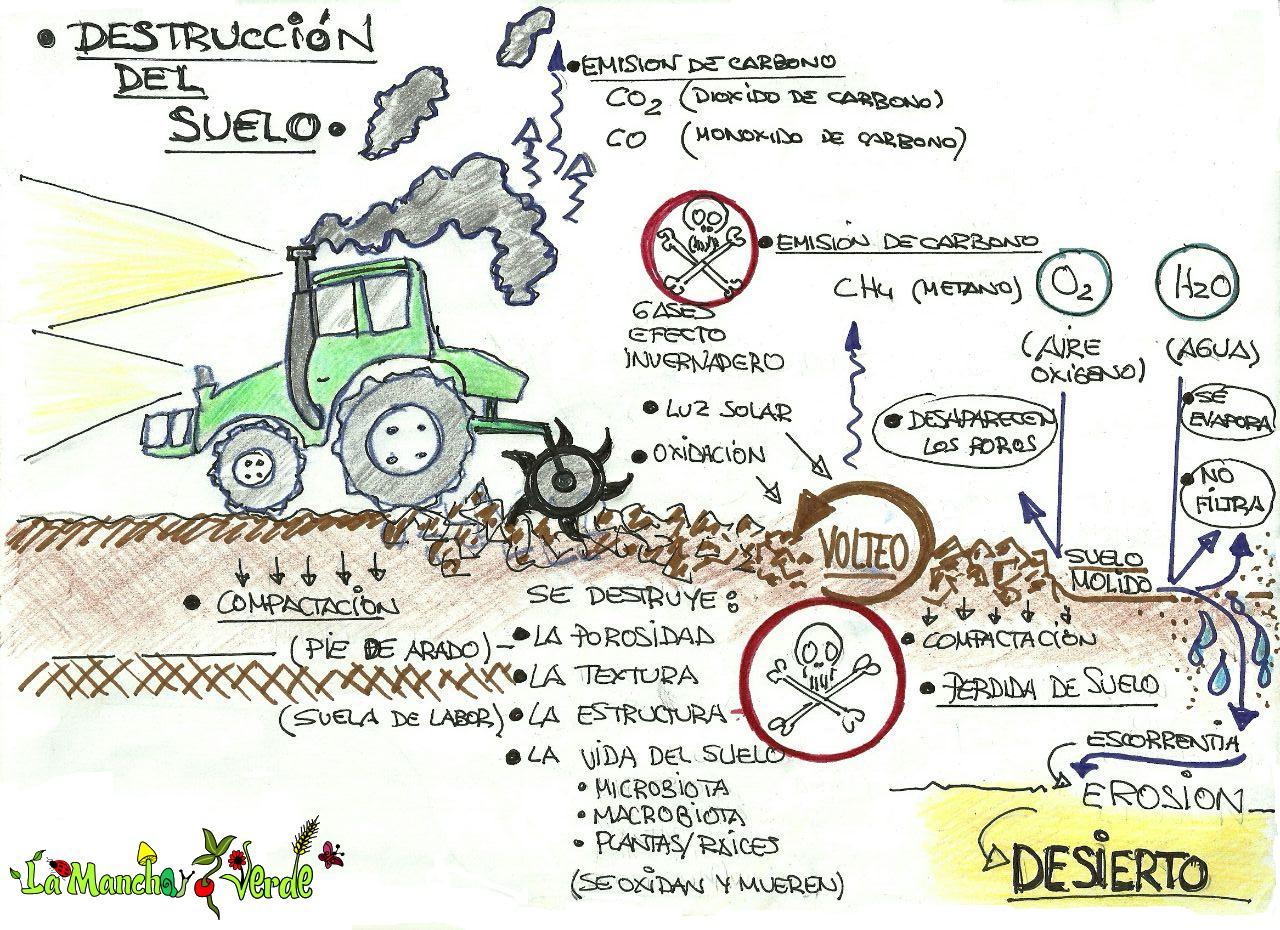 • DESTRUCCIÓN
DEL
SUELO •
• EMISION DE CARBONO
CO2 (DIOXIDO DE CARBONO)
CO (MONOXIDO DE CARBONO)
• EMISIÓN DE CARBONO
CH4 (METANO)
O2
(AIRE
OXIGENO)
H2O
(AGUA)
GASES
EFECTO
INVERNADERO
• LUZ SOLAR
• OXIDACIÓN
• DESAPARECEN
LOS POROS
• SE
EVAPORA
• NO
FILTRA
VOLTEO
SUELO
MOLIDO
• COMPACTACIÓN
(PIE DE ARADO)
(SUELA DE LABOR)
SE DESTRUYE:
• LA POROSIDAD
• LA TEXTURA
• LA ESTRUCTURA
• LA VIDA DEL SUELO
• MICROBIOTA
• MACROBIOTA
• PLANTAS/RAÍCES
(SE OXIDAN Y MUEREN)
• COMPACTACIÓN
• PERDIDA DE SUELO
ESCORRENTIA
EROSIÓN
DESIERTO
La Mancha Verde